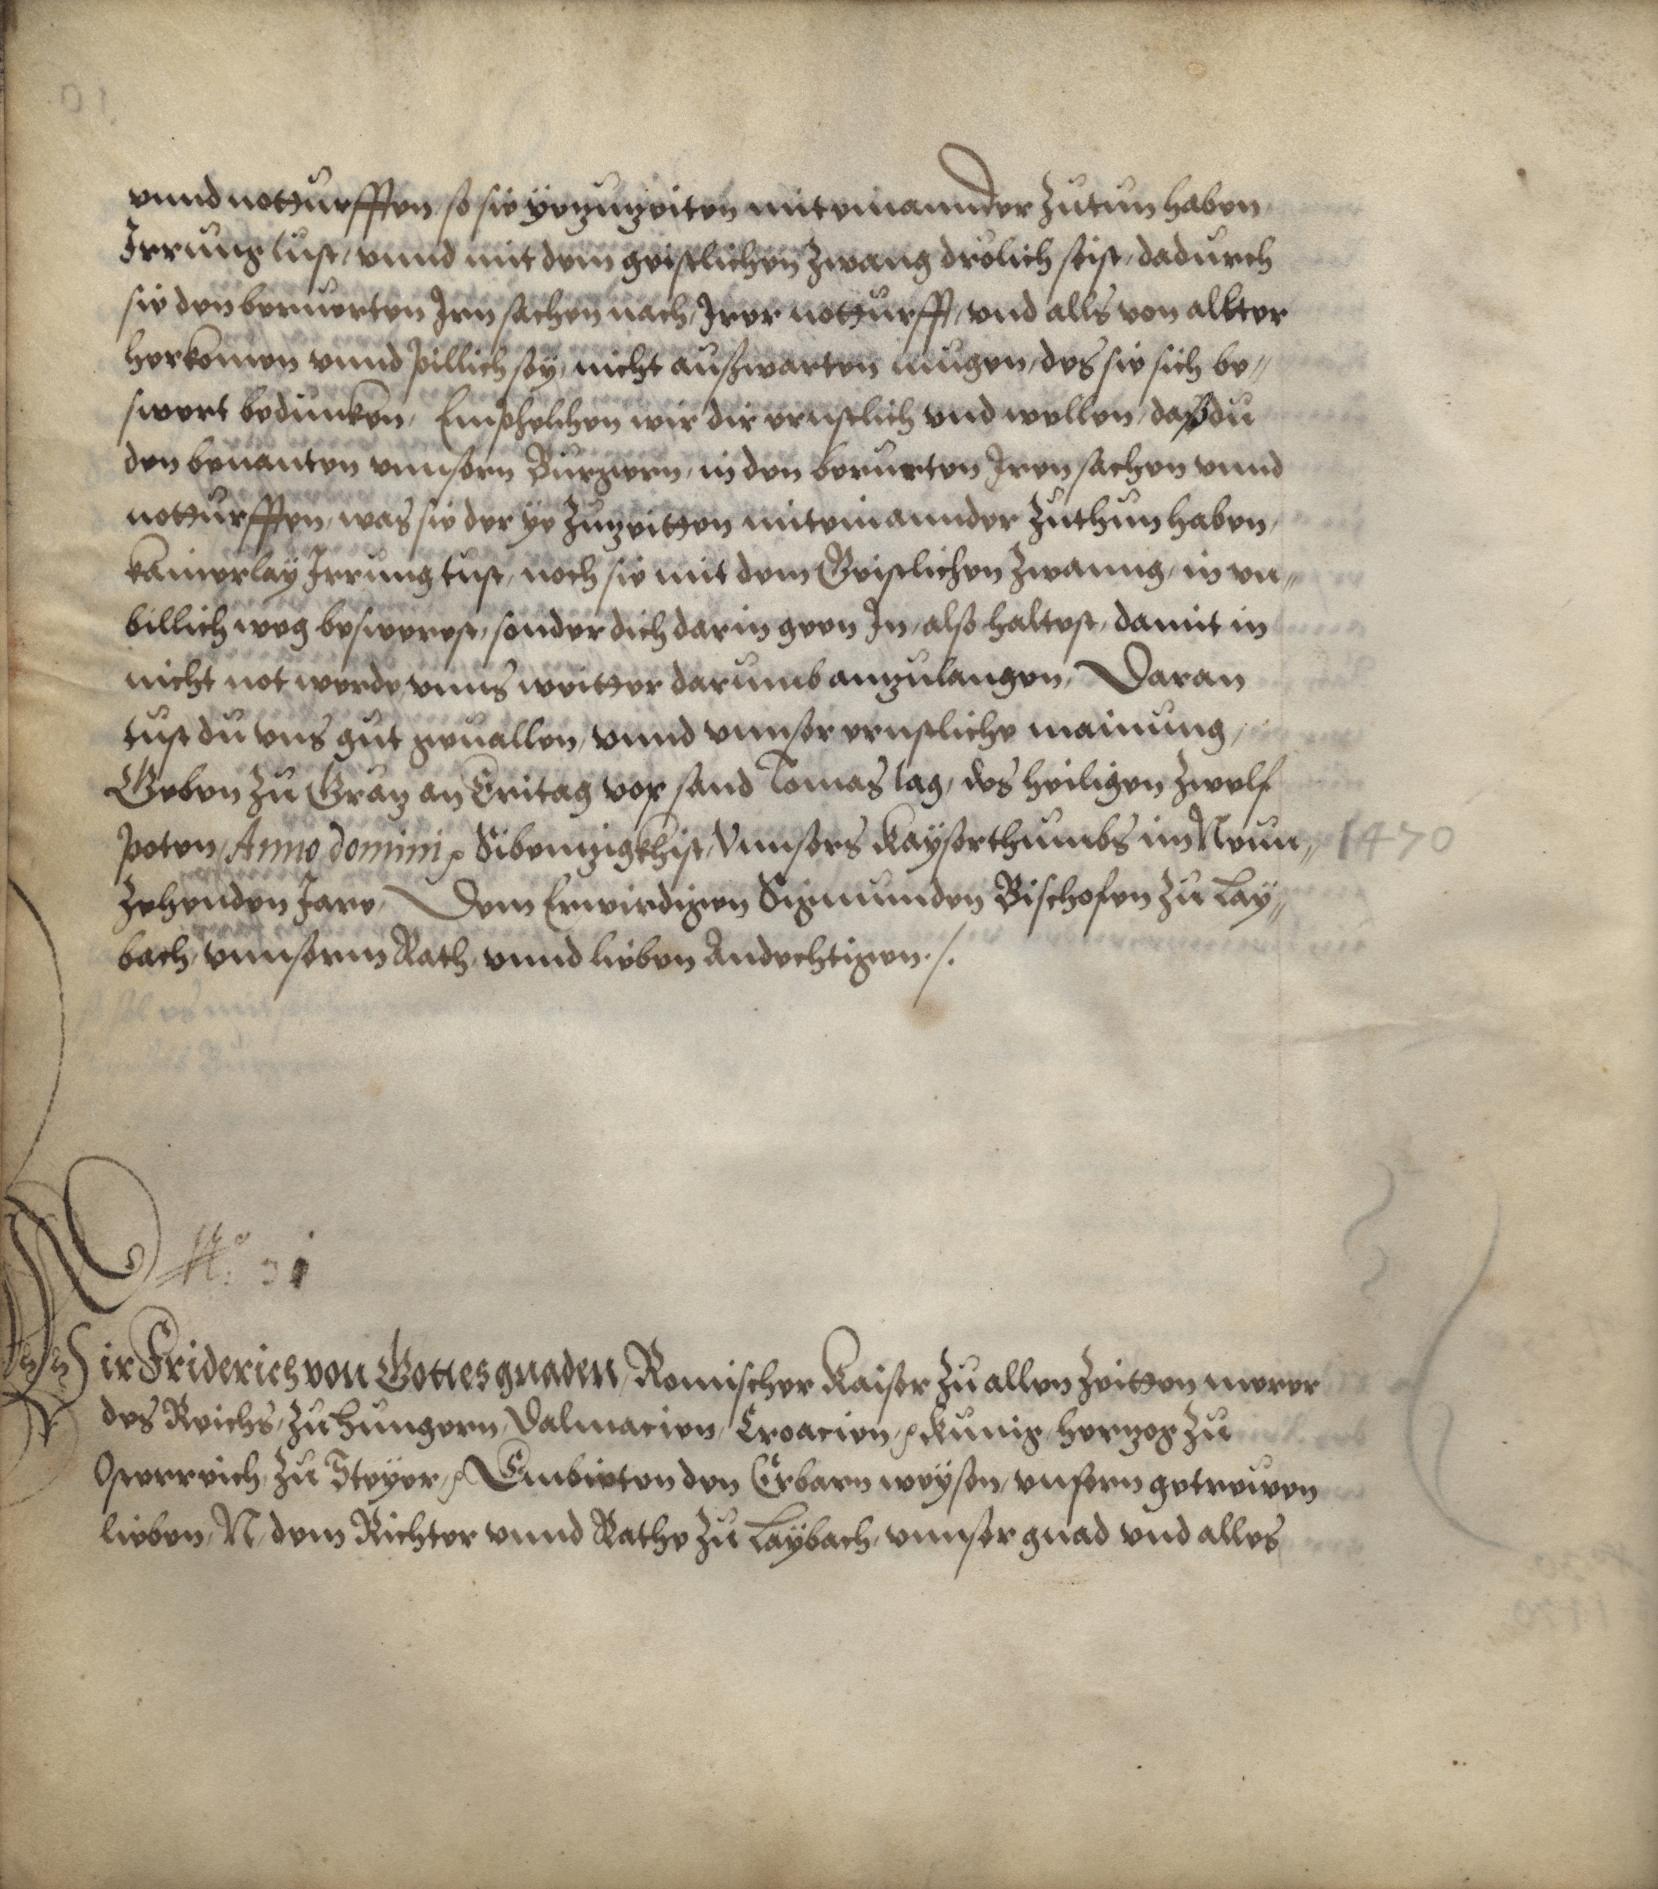 vnnd notturfften so sie yezuzeiten miteinannder zutun haben
Irrung tust, vnnd mit dem geistlichen zwang drölich seist, dadurch
sie den beruerten Irn sachen nach Irer notturfft, vnd alls von allter
herkomen vnnd pillich sey, nicht außwarten mugen, des sie sich be„
swert bedunken, Emphelhen wir dir ernstlich vnd wellen, daß du
den benanten vnnsern Burgern, in den berurten Iren sachen vnnd
notturfften, was sie der ye zuzeitten miteinannder zuthun haben,
kainerlay Irrung tust, noch sie mit dem Geistlichen zwanng, in vn„
billich weg beswerest, sonder dich darin geen In, also haltest, damit in
nicht not werde vnns weitter darumb anzulangen, Daran
tust du vns gut geuallen, vnnd vnnser ernstliche mainung,
Geben zu Graz an Eritag vor sand Tomas tag, des heiligen zwelf
poten, Anno domini Sibennzigkhist, Vnnsers Kayserthumbs im Neun„ 1470
zehenden Jare, Dem Erwirdigen Sigmunden Bischofen zu Lay„
bach, vnnserm Rath, vnnd lieben Andechtigen ./.
Wir Friderich von Gottes gnaden, Romischer Kaiser zu allen zeitten merer
des Reichs, zu Hungern, Dalmacien, Croacien, Kunig, Herzog zu
Osterreich, zu Steyer, Embieten den Erbarn weysen, vnsern getrewen
lieben, N, dem Richter vnnd Rathe zu Laybach, vnnser gnad vnd alles